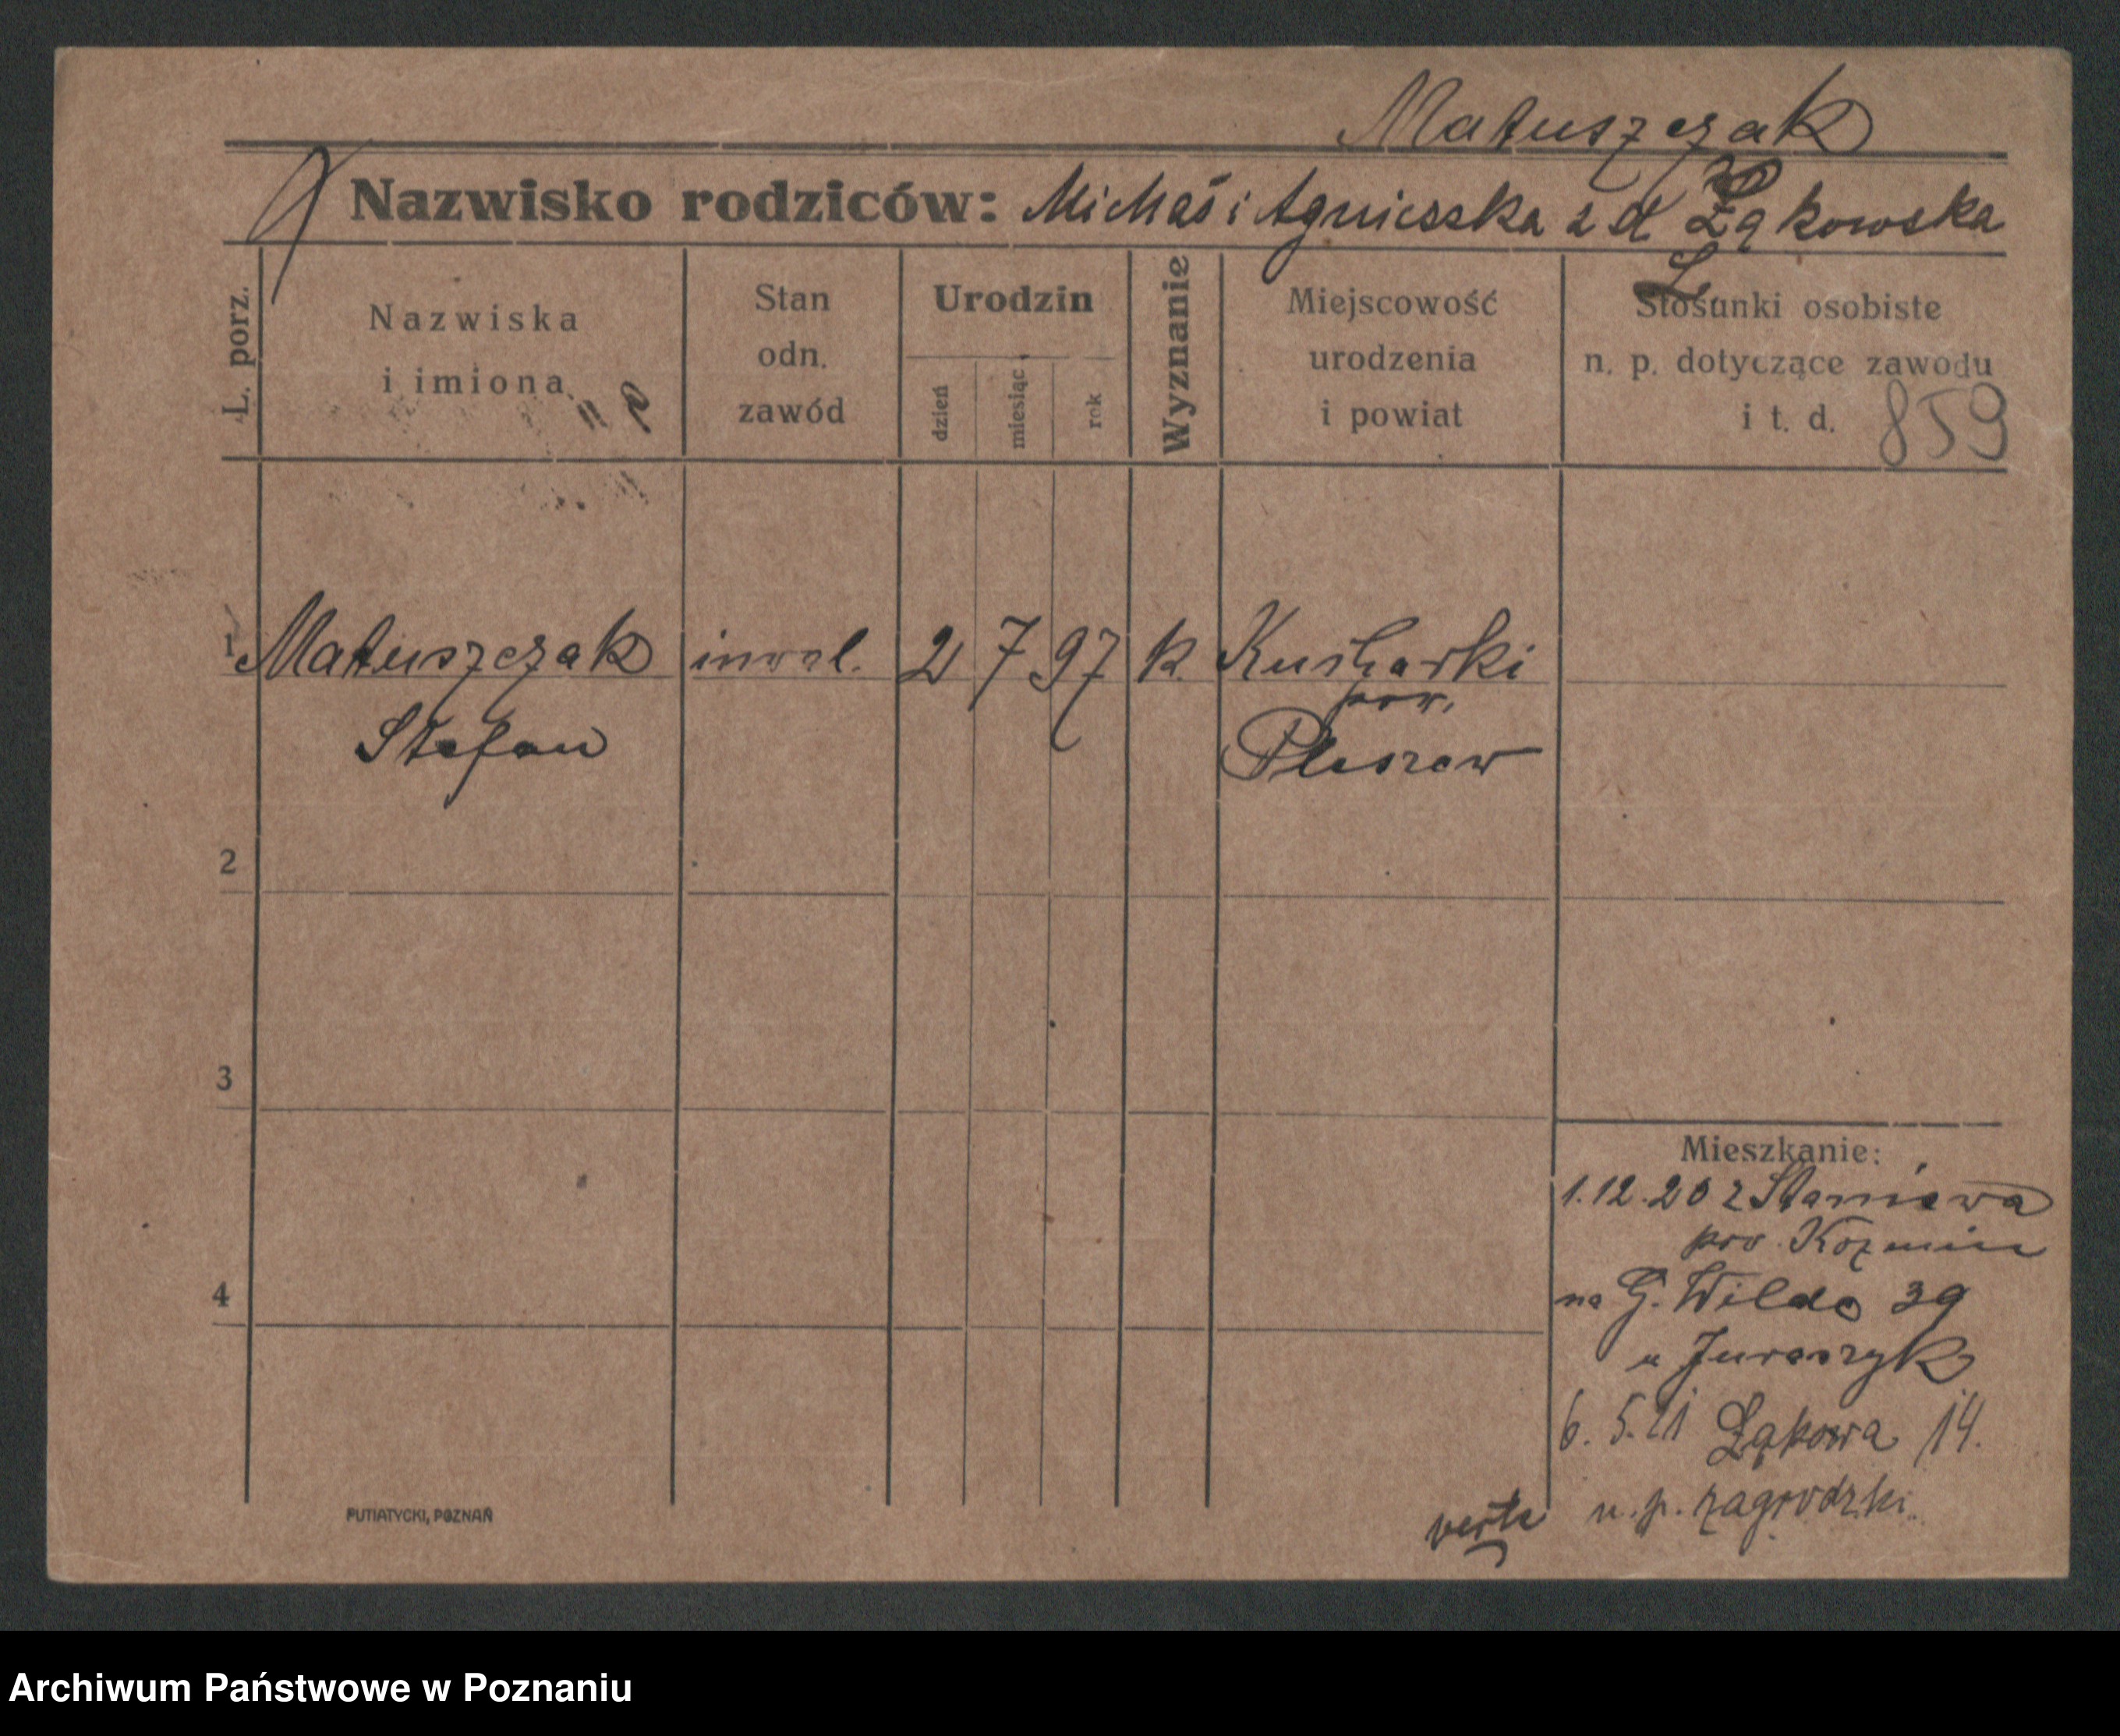 Matuszczak
Nazwisko rodziców: Michał i Agnieszka z d Łąkowska
L. porz.
Nazwiska
i imiona
Stan
odn.
zawód
Urodzin
dzień
miesiąc
rok
Wyznanie
Miejscowość
urodzenia
i powiat
Stosunki osobiste
n. p. dotyczące zawodu
i t. d.
859
1 Matuszczak inwal. 2 7 97 k. Kucharki
pow.
Stefan Pleszew
2
3
4
Mieszkanie:
1.12.20 z Staniewa
pow. Kozmin
na G. Wilda 39
u Juraszyk
6.5.21 Łąkowa 14.
u. p. Zagrodzki.
verte
PUTIATYCKI, POZNAŃ
Archiwum Państwowe w Poznaniu